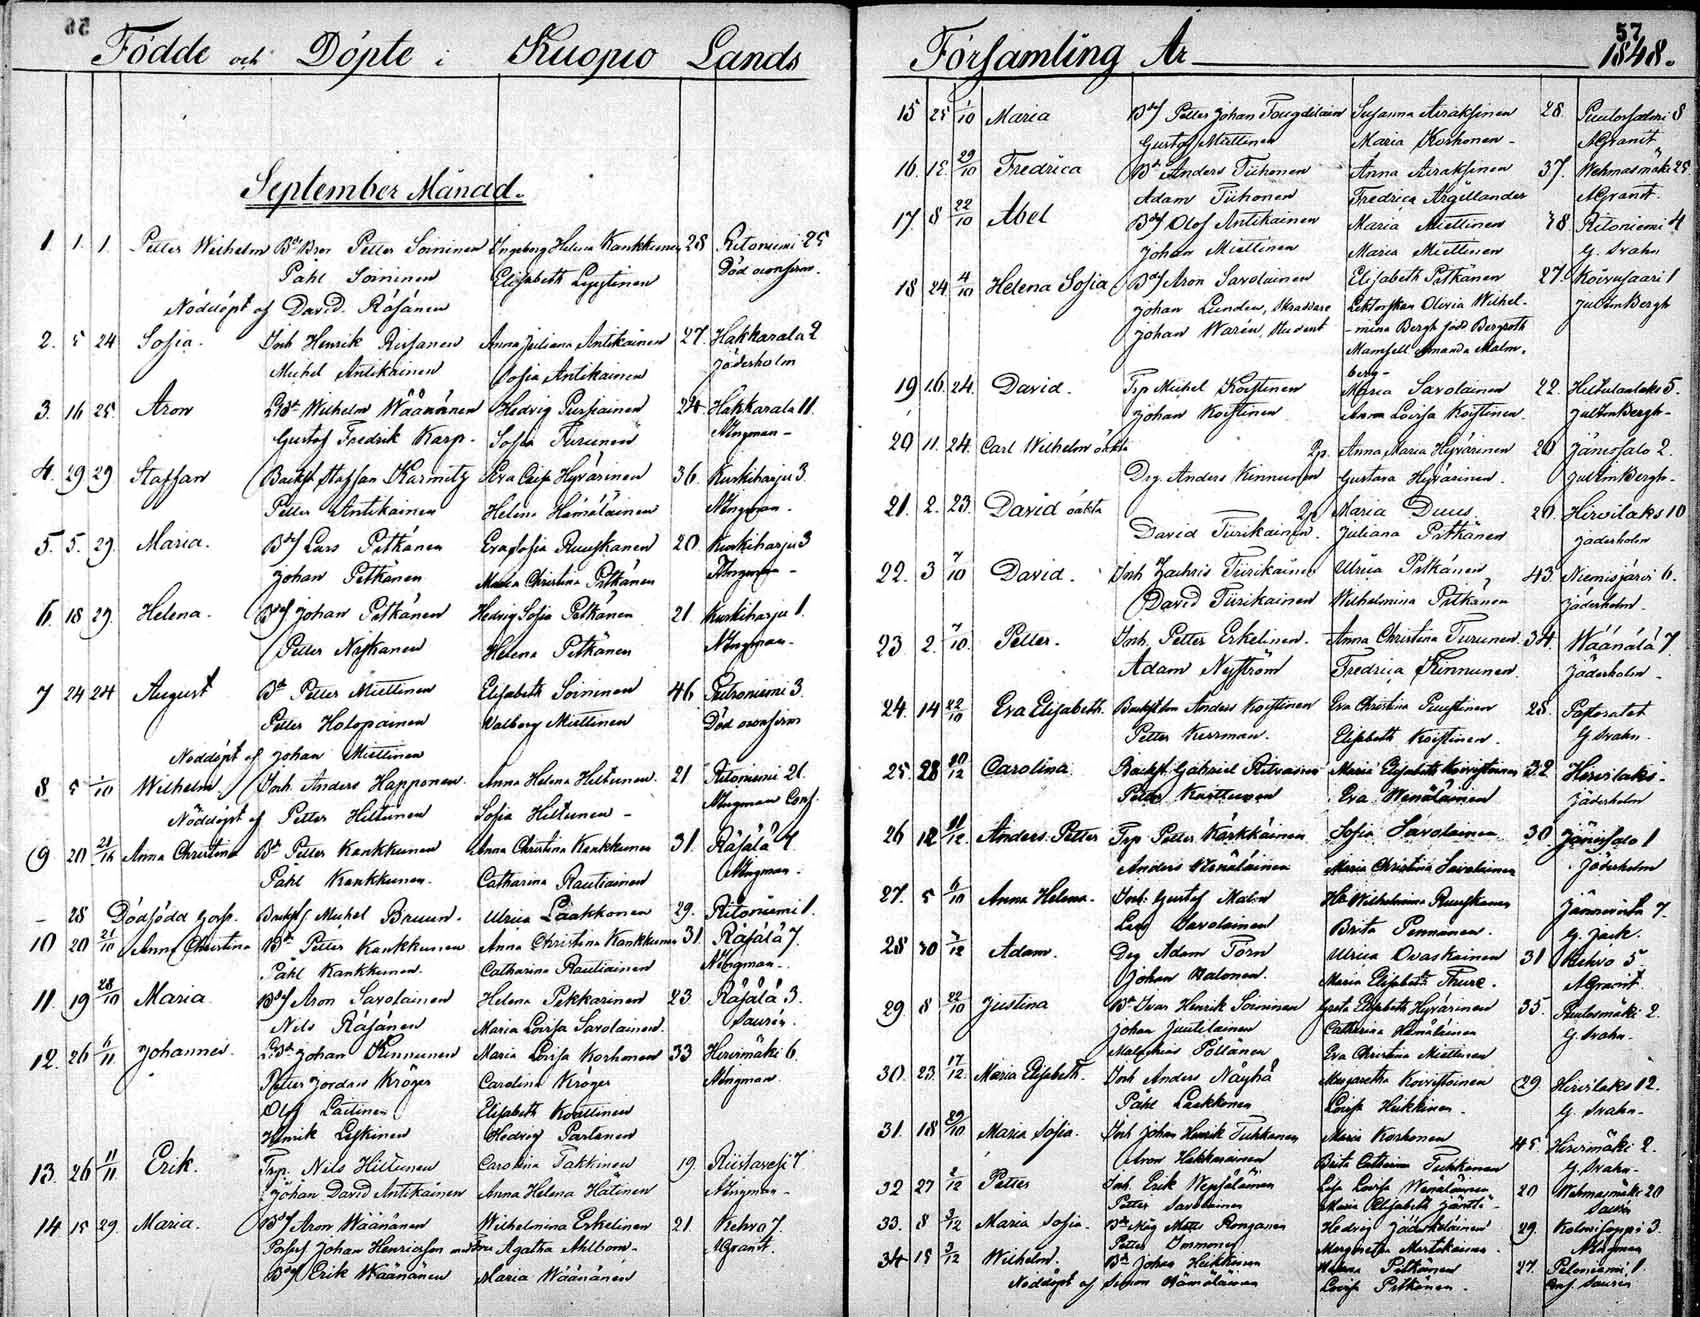 56
Födde och Döpte i Kuopio Lands
September Månad.
1. 1. 1. Petter Wilhelm Bdr Petter Soininen Ingeborg Helena Kankkunen 28 Ritoniemi 25
Pahl Soininen Elisabeth Död
Nöddöpt af David Räsänen
2. 5 24 Sofia. Inh Henrik Rissanen Anna Juliana Antikainen 27. Hakkarala 2
Michel Antikainen Sofia Antikainen Jäderholm
3. 16 25 Aron Wilhelm Wäänänen Hedvig Pursiainen 24 Hakkarala 11.
Gustaf Fredrik Karp. Sofia Turunen Ningman
4. 29 29 Staffan Backst Staffan Karmitz Eva Caisa Hyvärinen 36. Kurkiharju 3.
Petter Antikainen Helena Hämäläinen Ningman.
5. 5. 29. Maria. Bdf Lars Pitkänen Eva Sofia Ruuskanen 20. Kurkiharju 3
Johan Pitkänen Maria Christina Pitkänen Ningman
6. 18 29. Helena. Bdf Johan Pitkänen Hedvig Sofia Pitkänen 21. Kurkiharju 1.
Petter Niskanen Helena Pitkänen Ningman
7 24 24 August Bd Petter Miettinen Elisabeth Soininen 46 3.
Petter Holopainen Walborg Miettinen Död
Nöddöpt af Johan Miettinen
8 5 1/10 Wilhelm Inh. Anders Happonen. Anna Helena Hiltunen. 21 Ritoniemi 21.
Nöddöpt af Petter Hiltunen Sofia Hiltunen Ningman Conf.
9 20 Anna Christina Bd Petter Kankkunen Anna Christina Kankkunen 31. Räsälä 7.
Pahl Kankkunen. Catharina Rautiainen Ningman.
- 28 Dödfödd Michel Bruun. Ulrica Laakkonen 29. Ritoniemi 1.
10 20 21/10 Anna Christina Bd Petter Kankkunen Anna Christina Kankkunen 31. Räsälä 7.
Pahl Kankkunen. Catharina Rautiainen Ningman.
11. 19 28/10 Maria Bdf Aron Savolainen Helena Pekkarinen 23. Räsälä 3.
Nils Räsänen Maria Lovisa Savolainen. Saurén.
12. 26 6/11 Johannes. Johan Kinnunen Maria Lovisa Korhonen 33 Hirvimäki 6.
Petter Jordan Kröger Carolina Kröger Ningman.
Olof Laitinen Elisabeth
Henrik Leskinen Hedvig Partanen
13. 26 11/11 Erik. Trp. Nils Hiltunen Carolina Takkinen 19. Riistavesi 7
Johan David Antikainen Anna Helena Hätinen Ningman
14 15 29. Maria. Bdf Aron Wäänänen Wilhelmina Eskelinen 21. Kehvo 7.
Johan Henricsson Agatha Ahlbom. AGranit.
Bdf Erik Wäänänen Maria Wäänänen
57
Församling År 1848.
15 25 1/10 Maria Bdf Petter Johan Fougdilain Susanna Airaksinen 28. 8
Gustaf Miettinen Maria Korhonen AGranit
16. 15. 29/10 Fredrica Bd Anders Tiihonen Anna Airaksinen 37. Wehmasmäki 25
Adam Tiihonen Fredrica Argillander AGranit.
17. 8 22/10 Abel Bdf Olof Antikainen Maria Miettinen 38 Ritoniemi 4
Johan Miettinen Maria Miettinen G. Svahn
18 24 4/10 Helena Sofia Bdf Aron Savolainen Elisabeth Pitkänen 27. Koivusaari 1
Johan Lunden, Skräddare Lektorskan Olivia Wilhel- Jul Em Bergh
Johan Warén, Student -mina Bergh född Bergroth
Mamsell Amanda Malm-
berg
19 16. 24. David. Trp Michel Koistinen Maria Savolainen 22. 5.
Johan Koistinen Anna Lovisa Koistinen. Jul Em Bergh
20 11. 24. Carl Wilhelm oäkta Pp. Anna Maria Hyvärinen 20 Jänissalo 2.
Drg Anders Kinnunen Gustava Hyvärinen. Jul Em Bergh
21. 2. 23. David oäkta Maria Duus. 20. Hirvilaks 10
David Tiirikainen. Juliana Pitkänen Jäderholm
22. 3 7/10 David. Inh Zachris Tiirikainen Ulrica Pitkänen 43. Niemisjärvi 6.
David Tiirikainen Wilhelmina Pitkänen Jäderholm.
23. 2. 7/10. Petter. Inh. Petter Eskelinen. Anna Christina Turunen 34. Wäänälä 7
Adam Nyström Fredrica Kinnunen. Jäderholm
24. 14 22/10 Eva Elisabeth. Anders Koistinen Eva Christina Puustinen 28. Pastoratet
Petter Kerrman. Elisabeth Koistinen. G Svahn.
25. 28 Carolina. Backst. Gabriel Maria Elisabeth Koivistoinen 32 Hirvilaks
Petter Karttunen Eva Wenäläinen Jäderholm
26 12 Anders Petter Trp Petter Kärkkäinen Sofia Savolainen 30. Jänissalo 1
Anders Wenäläinen Maria Christina Savolainen Jäderholm
27. 5 6/10 Anna Helena. Inh: Gustaf Malin Wilhelmina Ruuskanen Jännevirta 7.
Lars Savolainen Brita Pennanen. G. Jack.
28 30 Adam. Drg Adam Törn Ulrica Ovaskainen 31 Kehvo 5
Johan Halonen. Maria Elisabeth Thure. AGranit.
29 8 22/10 Justina Bd Ivar Henrik Soininen Greta Elisabeth Hyvärinen 35. 2.
Johan Juutilainen Catharina Hämäläinen G. Svahn.
Malachias Pöllänen Eva Christina Miettinen
30. 23. 17/12. Maria Elisabeth. Inh Anders Näykä Margaretha Koivistoinen 29 Hirvilaks 12.
Pahl Laakkonen Lovisa Heikkinen. G. Svahn
31. 18 29/10 Maria Sofia. Inh Johan Henrik Tuhkanen Maria Korhonen 45 Hirvimäki 2.
Aron Hakkarainen Brita Catharina Tuhkanen G. Svahn
32 27 Petter Inh. Erik Wepsäläinen Lisa Lovisa Wenäläinen 20 Wehmasmäki 20
Petter Savolainen Maria Elisabeth Saurén
33. 8 3/12 Maria Sofia. Matts Ronganen Hedvig Jääskeläinen 29. 3.
Petter Immonen Margaretha Martikainen. Ningman
34 15 3/12 Wilhelm. Bd Johan Heikkinen Helena Pitkänen 27. Peloniemi 1
Nöddöpt af Simon Hämäläinen Lovisa Pitkänen. Conf. Saurén